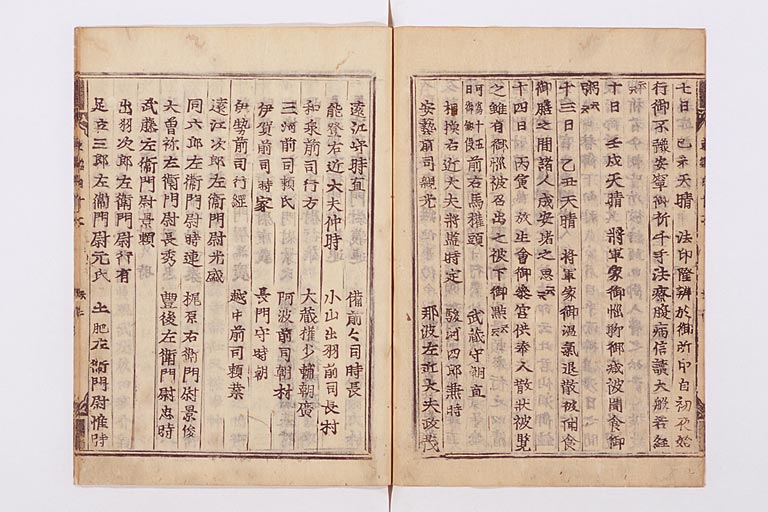 七日 己未天晴 法印隆辨於御所中自初夜始
行御不豫安寧御祈千手法療腹病信讀大般若経
十日 壬戌天晴 將軍家御惱昨御減被聞食御
粥云々
十三日 乙丑天晴 將軍家御温氣退散被聞食
御膳之間諸人成安堵之思云々
十四日 丙寅 放生會御参宮供奉人散状被覧
之雖有御
被召出之被下御點云々
前右馬權頭 武蔵守朝直
相摸右近大夫將監時定 駿河四郎兼時
安藝前司親光 那波左近大夫政茂
遠江守時直 備前々司時長
能登右近大夫仲時 小山出羽前司長村
和泉前司行方 大蔵權少輔朝廣
三河前司頼氏 阿波前司朝村
伊賀前司時家 長門守時朝
伊勢前司行經 越中前司頼業
遠江次郎左衛門尉光盛
同六郎左衛門尉時連 梶原右衛門尉景俊
大曽祢左衛門尉長泰 豊後左衛門尉忠時
武藤左衛門尉景頼
出羽次郎左衛門尉行有
足立三郎左衛門尉元氏 土肥左衛門尉惟時